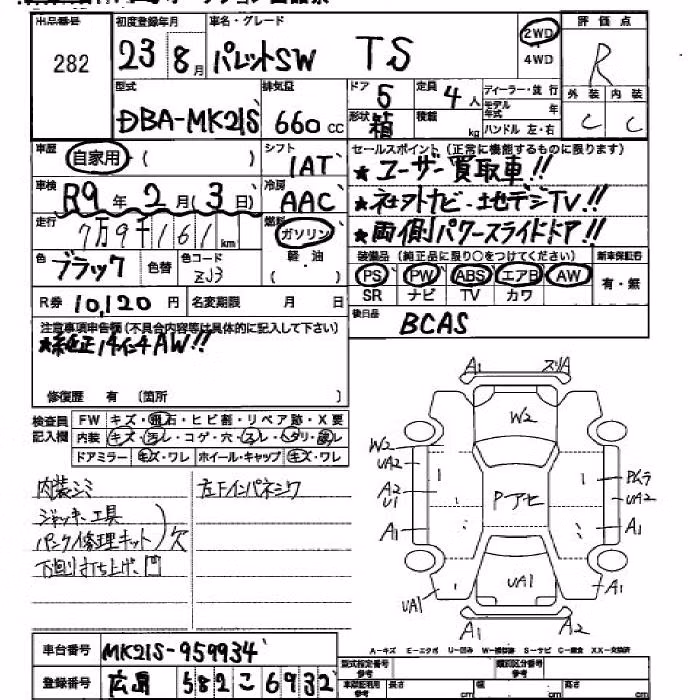 出品番号 282
初度登録年月 23 8月
車名・グレード パレットSW TS
2WD
4WD
評価点 R
外装 内装
C C
型式 DBA-MK21S
排気量 660cc
ドア 5
形状 箱
定員 4人
積載 kg
ディーラー・並行
モデル年式 年
ハンドル 左・右
車歴 自家用 ( )
シフト IAT
車検 R9年2月(3日)
冷房 AAC
走行 7万9千161km
燃料 ガソリン
軽油 ( )
色 ブラック
色替
色コード ZJ3
R券 10,120円
名変期限 月 日
セールスポイント(正常に機能するものに限ります)
★ユーザー買取車!!
★社外ナビ・地デジTV!!
★両側パワースライドドア!!
装備品(純正品に限り○をつけてください)
新車保証書
PS PW ABS エアB AW
SR ナビ TV カワ
有・無
後日品 BCAS
注意事項申告欄(不具合内容等は具体的に記入して下さい)
★純正14インチAW!!
修復歴 有 〔箇所 〕
検査員記入欄
FW キズ・飛石・ヒビ割・リペア跡・X要
内装 キズ・汚レ・コゲ・穴・スレ・ヘタリ・破レ
ドアミラー キズ・ワレ ホイール・キャップ キズ・ワレ
内装シミ
ジャッキ、工具
パンク修理キット
欠
下廻り打ち上げ、凹
左Fインパネシワ
A1 スリA
W2
W2
UA2
A2
U1
A1
Pアセ
Pムラ
UA2
A1
UA1
UA1
A1
A1 A2
A-キズ E-エクボ U-凹み W-補修跡 S-サビ C-腐食 XX-交換済
車台番号 MK21S-959934
登録番号 広島 582 こ 6932
型式指定番号 参考
類別区分番号 参考
車検証利用 参考
長さ cm
幅 cm
高さ cm